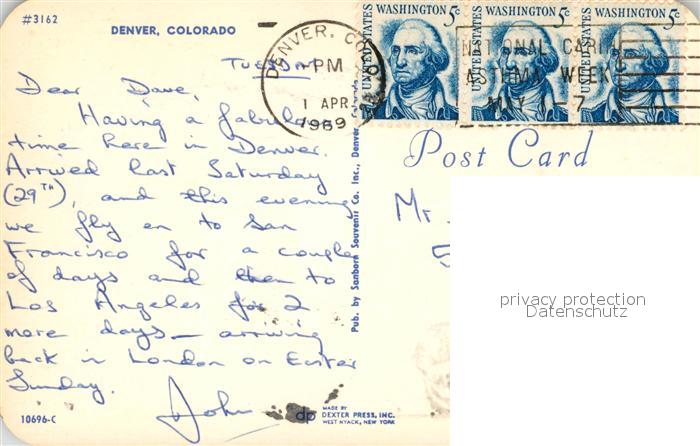 #3162
DENVER, COLORADO
TUESDAY
Dear Dave,
Having a fabulous
time here in Denver.
Arrived last Saturday
(29TH), and this evening
we fly on to San
Francisco for a couple
of days and then to
Los Angeles for 2
more days - arriving
back in London on Easter
Sunday.
John
10696-C
Pub. by Sanborn Souvenir Co. Inc., Denver, Colorado
dp MADE BY
DEXTER PRESS, INC.
WEST NYACK, NEW YORK
DENVER, COLO
PM
1 APR
1969
UNITED STATES WASHINGTON 5c
UNITED STATES WASHINGTON 5c
UNITED STATES WASHINGTON 5c
NATIONAL
ASTHMA WEEK
MAY 1-7
Post Card
Mr
privacy protection
Datenschutz